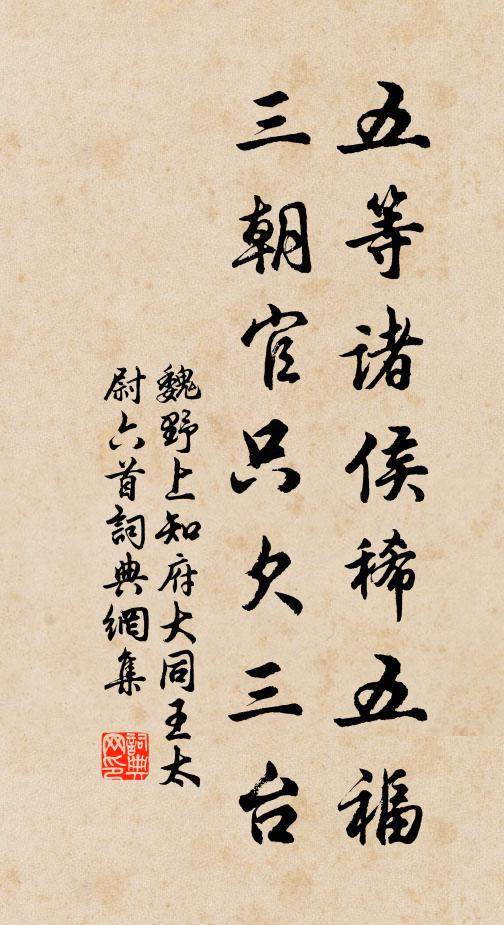 五等諸侯稀五福
三朝官只欠三台
魏野上知府大同王太
尉六首詞典網集
詞典網印